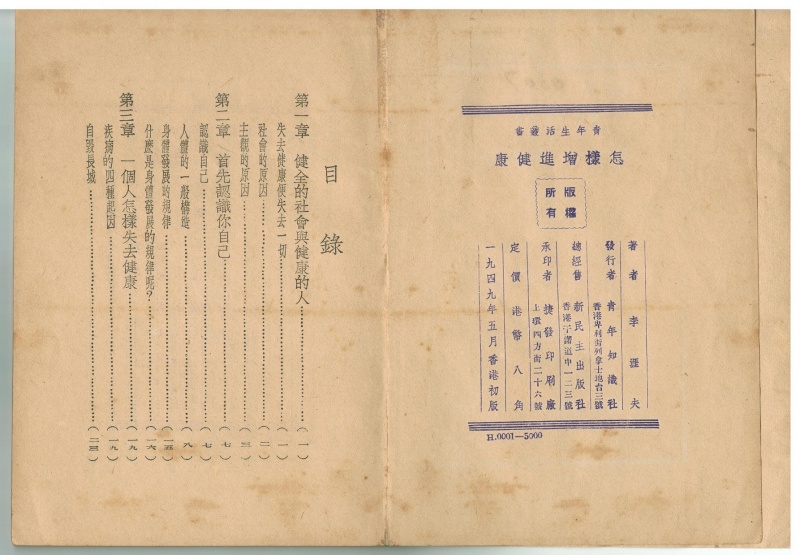 青年生活叢書
怎樣增進健康
版權
所有
著者 李涯夫
發行者 青年知識社
香港卑利街列拿士地台三號
總經售 新民主出版社
香港干諾道中一二三號
承印者 捷發印刷廠
上環四方街二十六號
定價 港幣八角
一九四九年五月香港初版
H.0001—5000
目錄
第一章 健全的社會與健康的人…………(一)
失去健康便失去一切…………(一)
社會的原因…………(二)
主觀的原因…………(三)
第二章 首先認識你自己…………(七)
認識自己…………(七)
人體的一般構造…………(八)
身體發展的規律…………(一五)
什麼是身體發展的規律呢?…………(一六)
第三章 一個人怎樣失去健康…………(一九)
疾病的四種起因…………(一九)
自毀長城…………(二三)